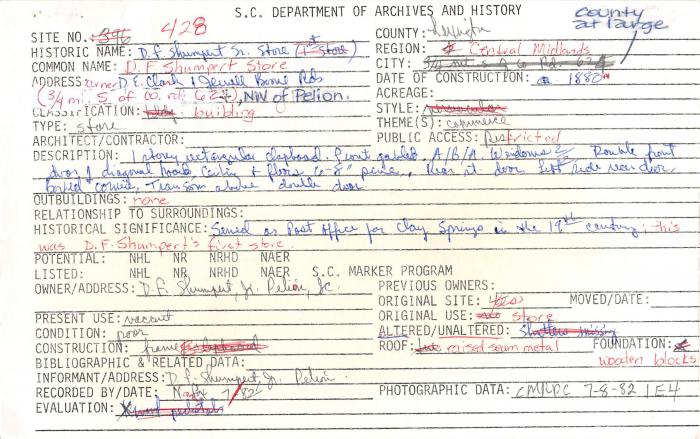 S.C. DEPARTMENT OF ARCHIVES AND HISTORY
county at large
SITE NO. 396 428 COUNTY: Lexington
HISTORIC NAME: D.F. Shumpert Sr. Store (1st Store) REGION: Central Midlands
COMMON NAME: D F Shumpert Store CITY: 3/4 mi. S of Co Rd. 62
ADDRESS corner D.E. Clark & Jewell Rds DATE OF CONSTRUCTION: ca. 1880
(3/4 mi. S of co rd. 62), NW of Pelion. ACREAGE:
CLASSIFICATION: building STYLE: vernacular
TYPE: store THEME(S): commerce
ARCHITECT/CONTRACTOR: PUBLIC ACCESS: Restricted
DESCRIPTION: 1 storey rectangular clapboard. Front gabled. A/B/A Windows Double front
door of diagonal boards Ceiling & floors 6-8" , Rear rt. door Left side rear door,
Boxed cornice, Transom above double door
OUTBUILDINGS: none
RELATIONSHIP TO SURROUNDINGS:
HISTORICAL SIGNIFICANCE: Served as Post Office for Clay Springs in the 19th century; this
was D.F. Shumpert's first store.
POTENTIAL: NHL NR NRHD NAER
LISTED: NHL NR NRHD NAER S.C. MARKER PROGRAM
OWNER/ADDRESS: D.F. Shumpert, Jr. Pelion, SC PREVIOUS OWNERS:
ORIGINAL SITE: yes MOVED/DATE:
PRESENT USE: vacant ORIGINAL USE: store
CONDITION: poor ALTERED/UNALTERED: Shutters missing
CONSTRUCTION: frame clapboard ROOF: raised seam metal FOUNDATION: wooden blocks
BIBLIOGRAPHIC & RELATED DATA:
INFORMANT/ADDRESS: D.F. Shumpert, Jr. Pelion
RECORDED BY/DATE: 7/82 PHOTOGRAPHIC DATA: CMRPC 7-8-82 1E4
EVALUATION: